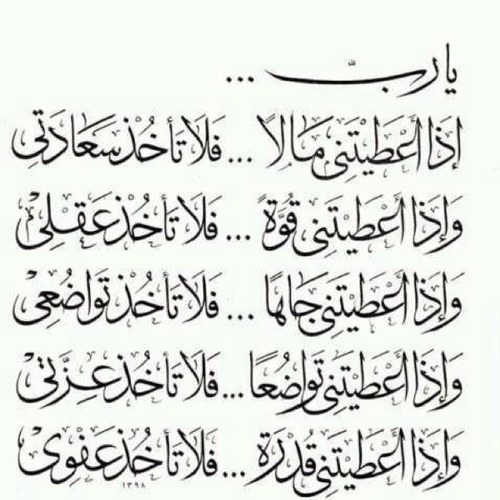 يا ربّ ...
إِذَا أَعْطَيْتَنِي مَالاً ... فَلَا تَأْخُذْ سَعَادَتِي
وَإِذَا أَعْطَيْتَنِي قُوَّةً ... فَلَا تَأْخُذْ عَقْلِي
وَإِذَا أَعْطَيْتَنِي جَاهًا ... فَلَا تَأْخُذْ تَوَاضُعِي
وَإِذَا أَعْطَيْتَنِي تَوَاضُعًا ... فَلَا تَأْخُذْ عِزَّتِي
وَإِذَا أَعْطَيْتَنِي قُدْرَةً ... فَلَا تَأْخُذْ عَفْوِي
١٣٩٨